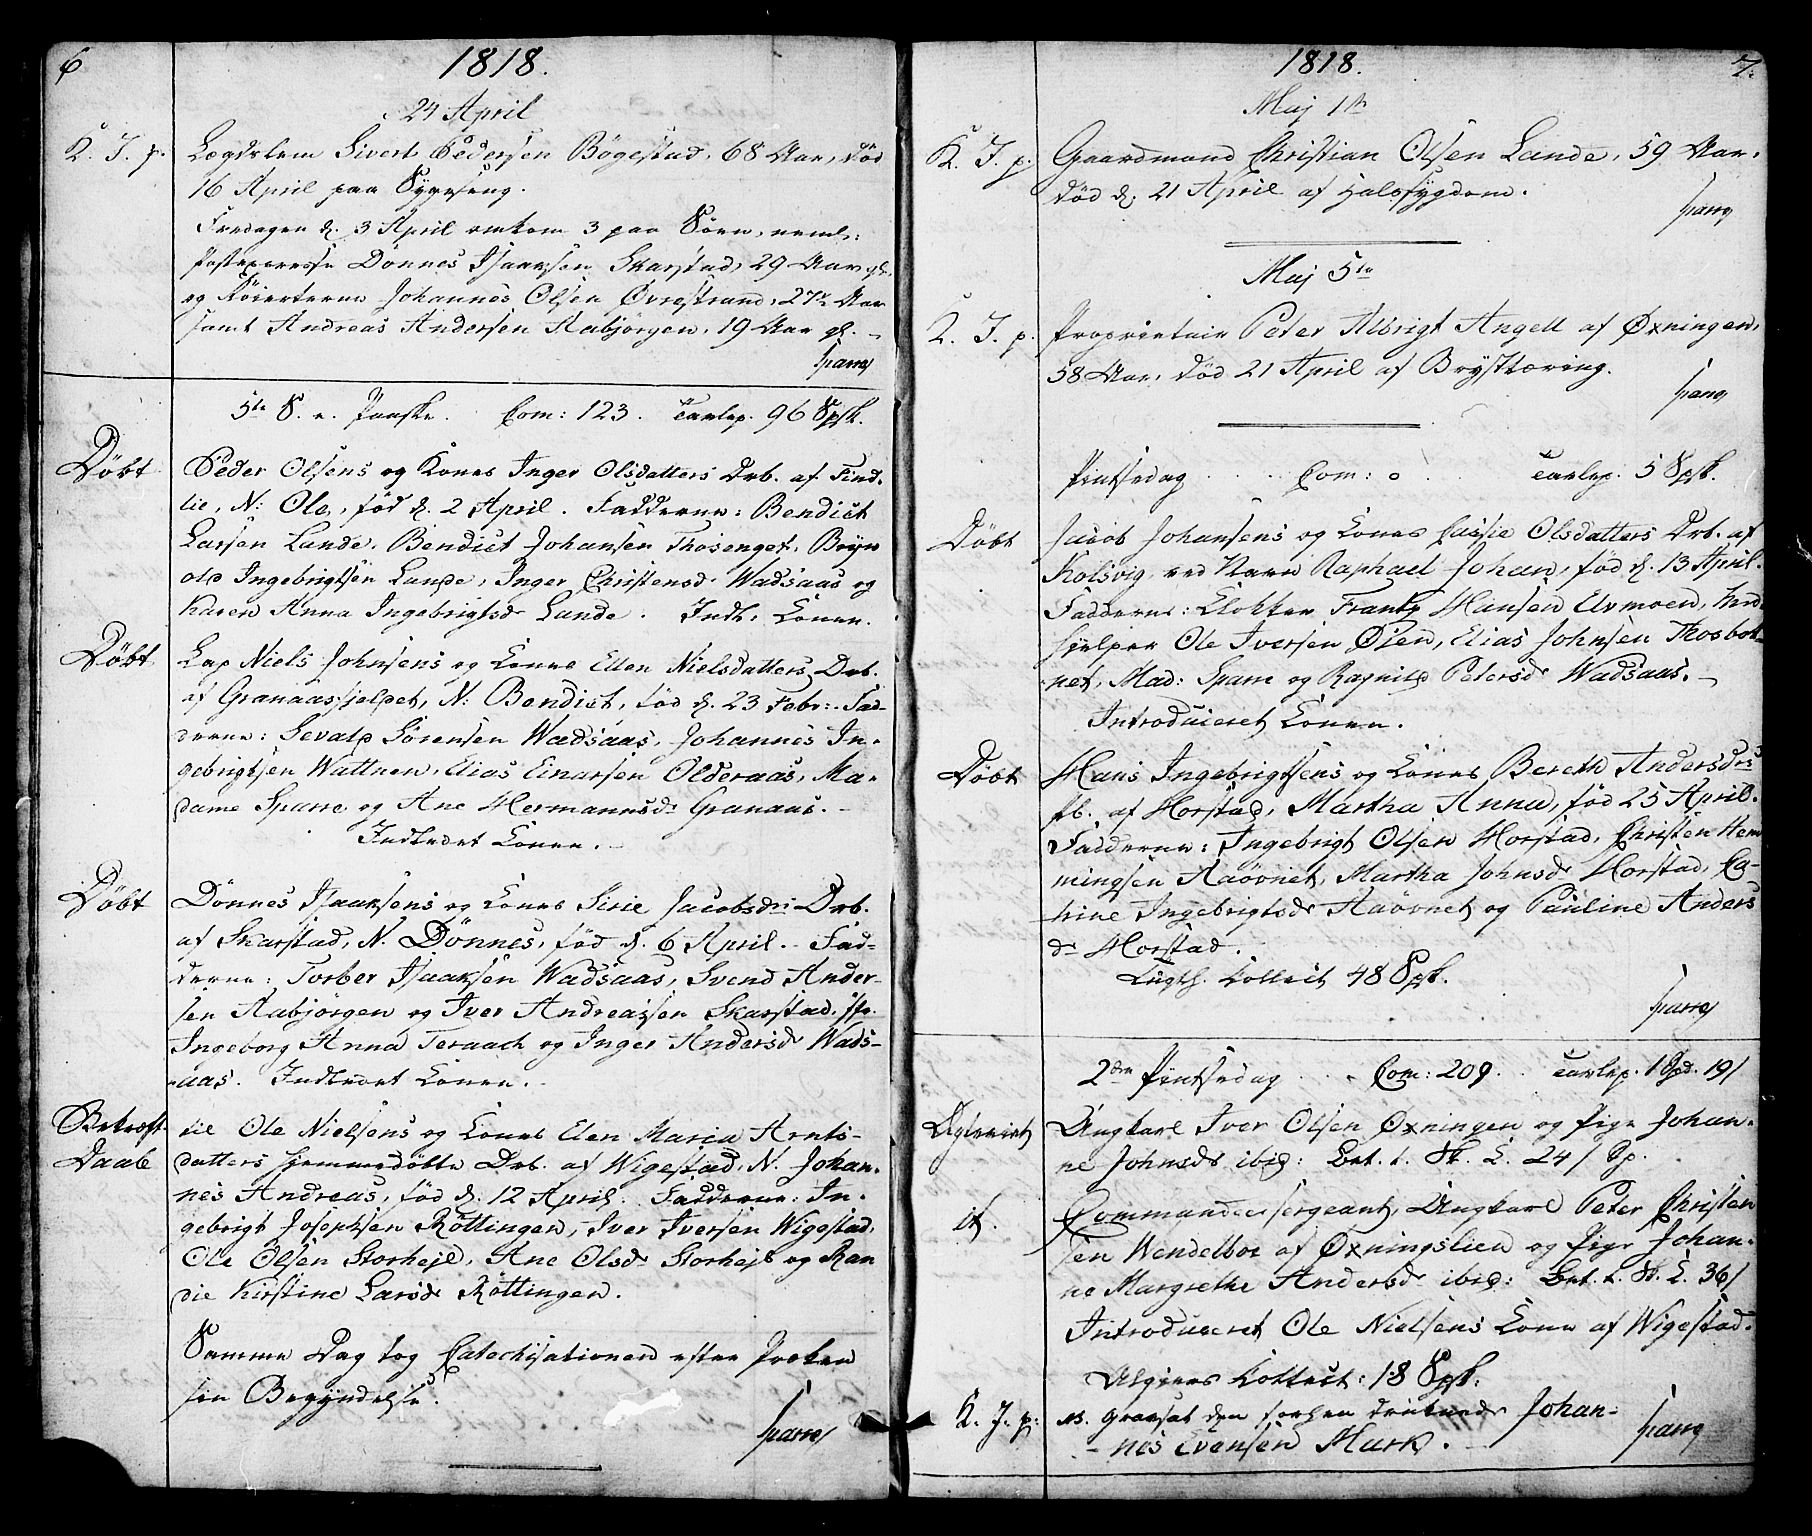 6
1818.
24 April
K. J. p. Lægdslem Sivert Pedersen Bøgestad, 68 Aar, død
16 April paa Sygeseng.
Fredagen d. 3 April omkom 3 paa Söen, neml:
Postexpresse Dönnes Isaaksen Skarstad, 29 Aar gl.
og Röierterne Johannes Olsen Övrestrand, 27 Aar
samt Andreas Andersen Aabjörgen, 19 Aar gl. -
Sparre
5te S. e. Paaske. Com: 123. Tavlep. 96 Spsk.
Döbt Peder Olsens og Kones Inger Olsdatters Drb. af Find-
lie, N: Ole, fød d. 2 April. Fadderne: Bendict
Larsen Lande, Bendict Johansen Thosenget, Bryn
old Ingebrigtsen Lande, Inger Christensd. Wadsaas og
Karen Anna Ingebrigtsd. Lande. Indl. Konen.
Döbt Lap Niels Johnsens og Kone Ellen Nielsdatters Drb.
af Granaasfjeldet, N: Bendict, fød d. 23 Febr: Fad-
derne: Sevald Sörensen Wadsaas, Johannes In-
gebrigtsen Wattnen, Elias Einarsen Olderaas, Ma-
dame Sparre og Ane Hermannsd. Granaas.
Indledet Konen.
Döbt Dönnes Isaaksens og Kones Sirie Jacobsdrs Drb.
af Skarstad, N. Dönnes, fød d. 6 April. Fad-
derne: Torber Isaaksen Wadsaas, Svend Ander-
sen Aabjörgen og Iver Andreassen Skarstad,
Ingeborg Anna Teraach og Inger Andersd. Wads-
aas. Indledet Konen.
Bekræft. til Ole Nielsens og Kones Elen Maria Arnts-
Daab datters hjemmedöbte Drb. af Wigestad, N. Johan-
nes Andreas, fød d. 12 April. Fadderne: In-
gebrigt Josephsen Röttingen, Iver Iversen Wigestad,
Ole Olsen Storhejl, Ane Olsd. Storhejl og Ran
die Kirstine Larsd. Röttingen.
Samme Dag tog Catechisationen efter Præken
sin Begyndelse.
Sparre
7.
1818.
Maj 1te
K. J. p. Gaardmand Christian Olsen Lande, 59 Aar,
død d. 21 April af Halssygdom.
Sparre
Maj 5te
K. J. p. Proprietair Peter Albrigt Angell af Øxningen,
58 Aar, død 21 April af Brysttæring.
Sparre
Pintsedag Com: 0 Tavlep. 5 Spsk.
Döbt Jacob Johansens og Kones Cissie Olsdatters Drb. af
Kolsvig, ved Navn Raphael Johan, fød d. 13 April.
Fadderne: Klokker Frantz Hansen Elvmoen, Med-
hjelper Ole Iversen Øien, Elias Johnsen Thosbot-
net, Mad: Sparre og Ragnild Petersd. Wadsaas. -
Introduceret Konen.
Döbt Hans Ingebrigtsens og Kones Bereth Andersdrs
Pb. af Horstad, Martha Anna, fød 25 April.
Fadderne: Ingebrigt Olsen Horstad, Christen Hem
mingsen Aaövnet, Martha Johnsd. Horstad, Ca-
thrine Ingebrigtsd. Aaövnet og Pauline Anders
d. Horstad.
Lugth. Collect 48 Spsk.
Sparre
2den Pintsedag Com: 209. Tavlep. 1 Spd. 19/
Ægteviet Ungkarl Iver Olsen Øxningen og Pige Johan-
ne Johnsd. ibid: Bet. t. St. L. 24/ Sp.
it. Commandeersergeant, Ungkarl Peter Christen
sen Wendelboe af Øxningslien og Pige Johan-
ne Margrethe Andersd. ibid: Bet. t. St. L. 36/
Introduceret Ole Nielsens Kone af Wigestad.
Algiers Collect: 18 Spsk.
K. J. p: Gravsat den forhen druknede Johan-
nes Evensen Mark.
Sparre